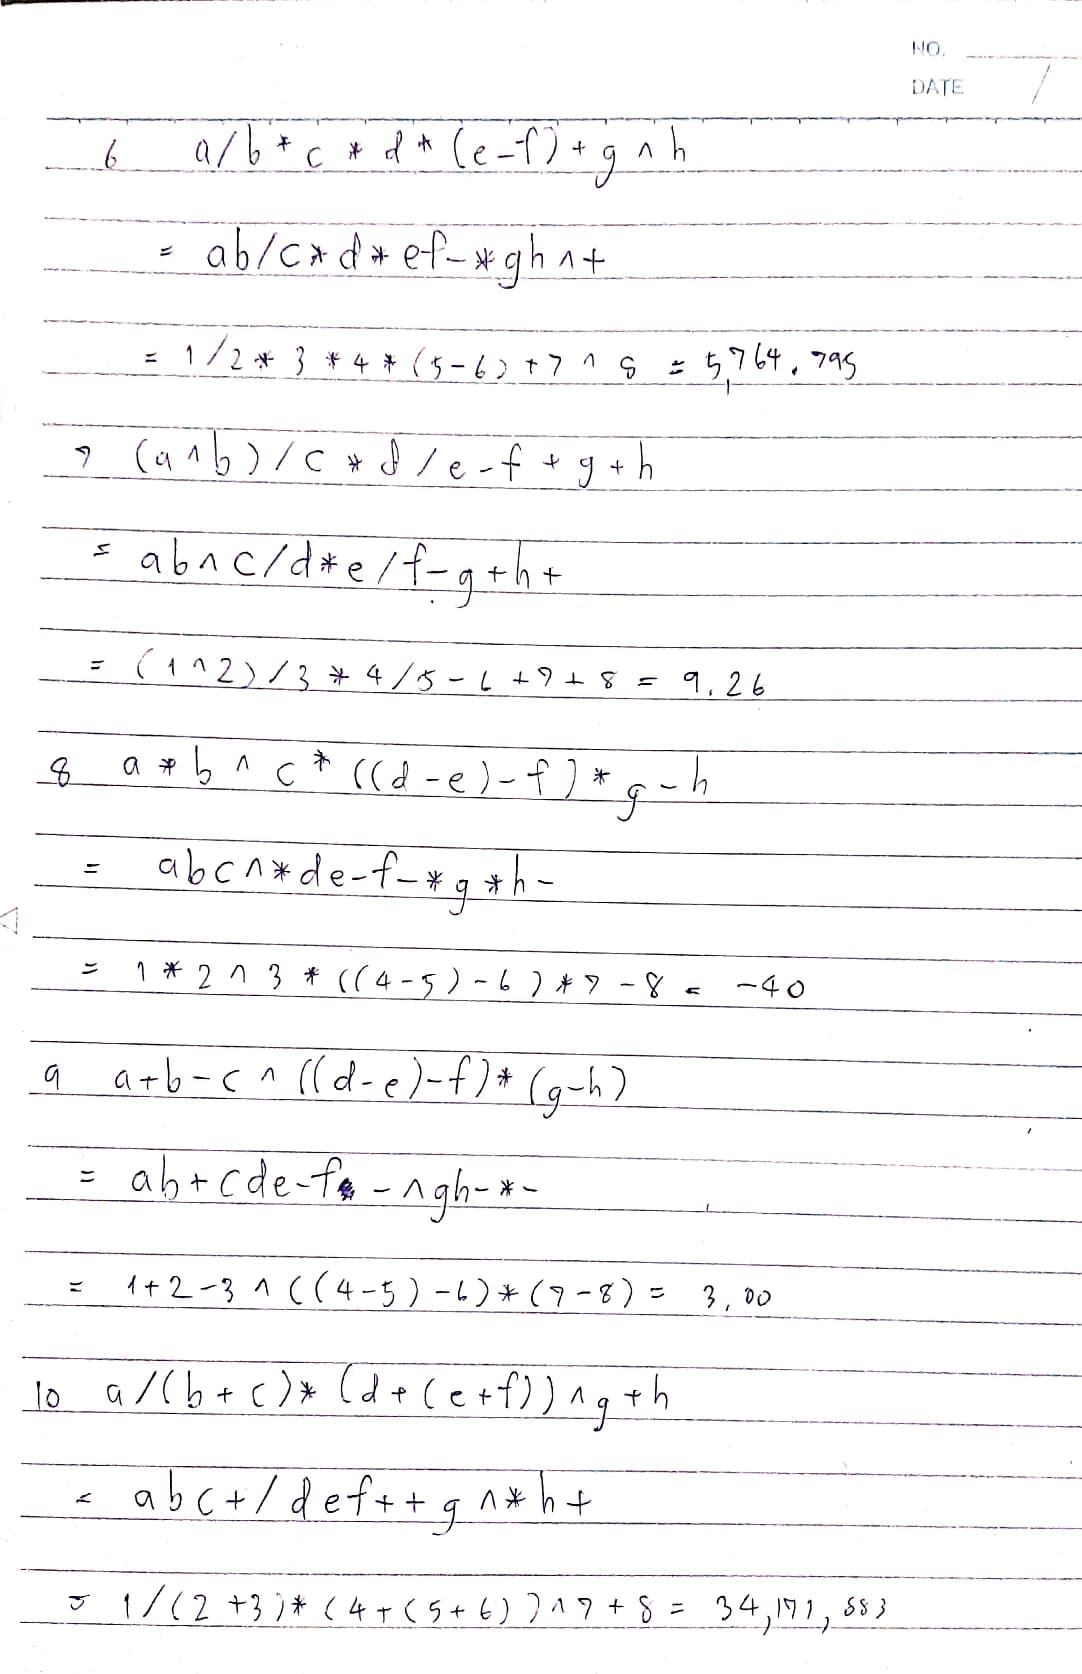 NO.
DATE
6 a/b*c*d*(e-f)+g^h
= ab/c*d*ef-*gh^+
= 1/2*3*4*(5-6)+7^8 = 5,764,795
7 (a^b)/c*d/e-f+g+h
= ab^c/d*e/f-g+h+
= (1^2)/3*4/5-6+7+8 = 9.26
8 a*b^c*((d-e)-f)*g-h
= abc^*de-f-*g*h-
= 1*2^3*((4-5)-6)*7-8 = -40
9 a+b-c^((d-e)-f)*(g-h)
= ab+cde-f-^gh-*-
= 1+2-3^((4-5)-6)*(7-8) = 3,00
10 a/(b+c)*(d+(e+f))^g+h
= abc+/def++g^*h+
= 1/(2+3)*(4+(5+6))^7+8 = 34,171,883